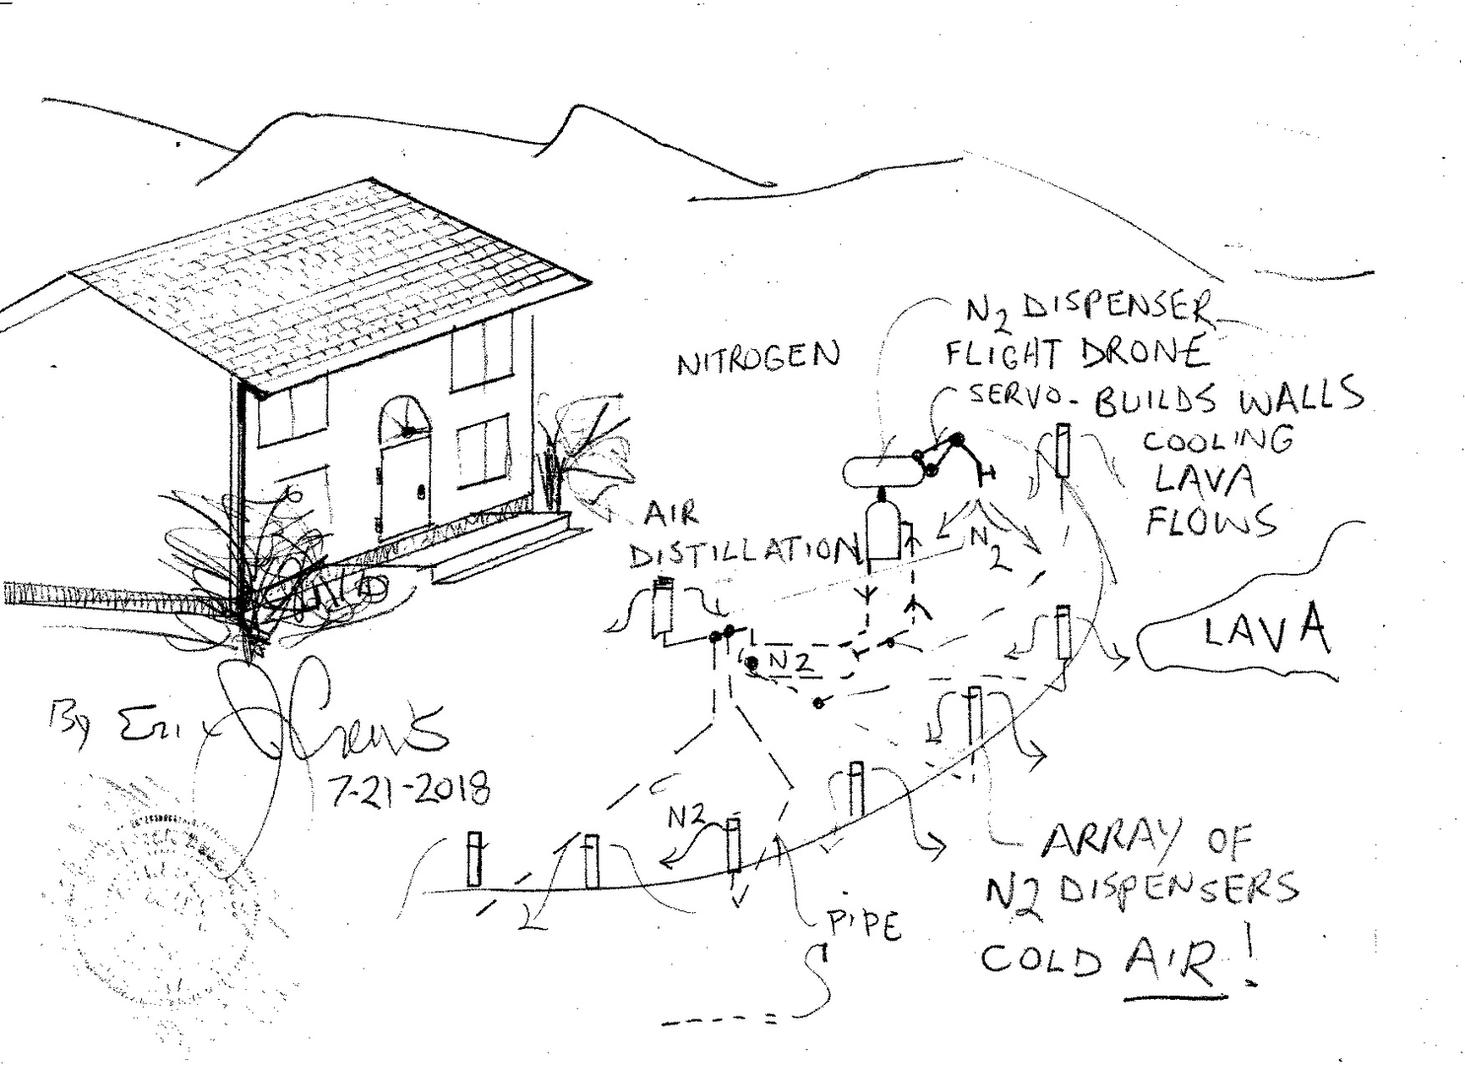 N2 DISPENSER
FLIGHT DRONE
SERVO- BUILDS WALLS
COOLING
LAVA
FLOWS
NITROGEN
AIR
DISTILLATION
N2
N2
LAVA
By Eric Crews
7-21-2018
N2
PIPE
ARRAY OF
N2 DISPENSERS
COLD AIR!